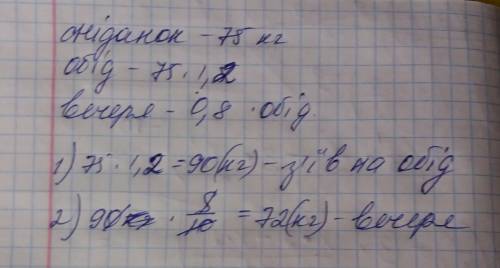 сніданок - 75 кг
обід - 75 · 1,2
вечеря - 0,8 · обід
1) 75 · 1,2 = 90(кг) - з'їв на обід
2) 90 · 8/10 = 72(кг) - вечеря